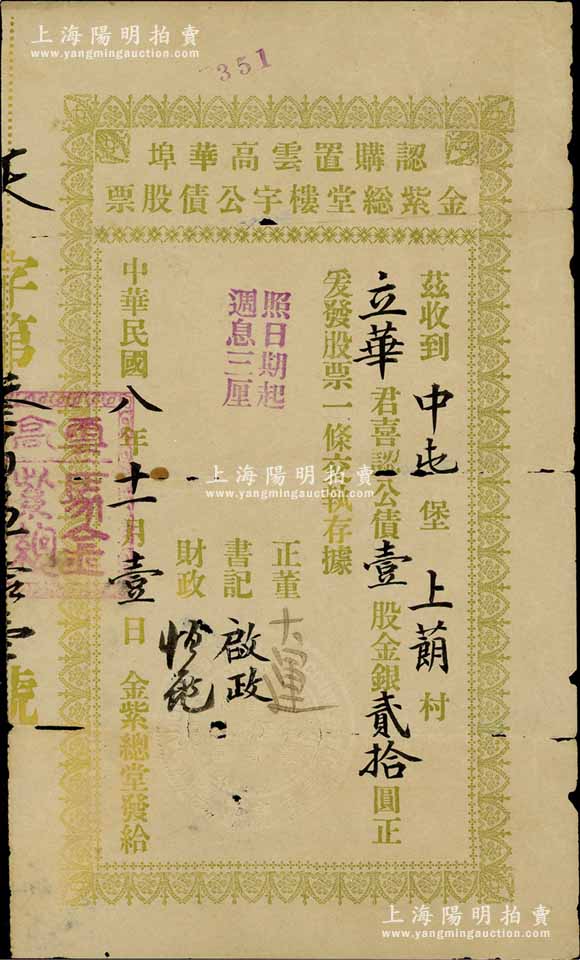 上海陽明拍賣
www.yangmingauction.com
351
認購置雲高華埠
金紫総堂樓宇公債股票
茲收到 中屯 堡 上蓢 村
立華 君喜認公債 壹 股金銀 貳拾 圓正
爰發股票一條 執存據
照日期起
週息三厘
正董 大運
書記 啟政
財政
中華民國 八 年 十一 月 壹 日 金紫總堂發給
天 字第 號
上海陽明拍賣
www.yangmingauction.com
上海陽明拍賣
www.yangmingauction.com